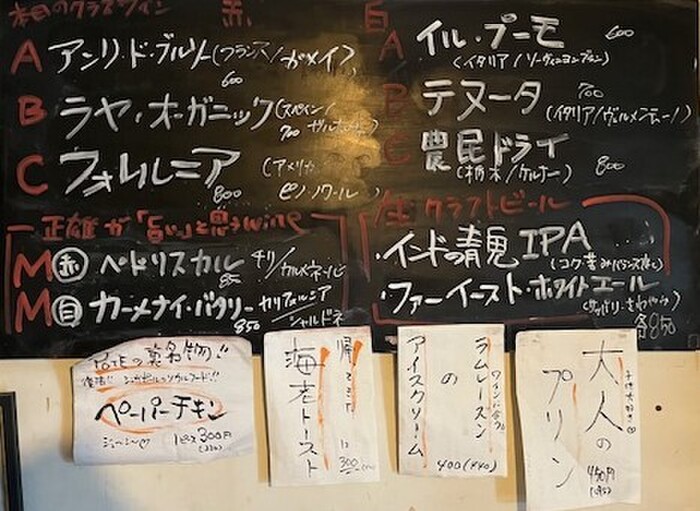 本日のグラスワイン 赤
A アンリ・ド・ブルソー (フランス/ガメイ)
600
B ラヤ・オーガニック (スペイン/
700 ガルナッチャ)
C フォルルニア (アメリカ
800 ピノ・ノワール)
白
A イル・プーモ 600
(イタリア/ソーヴィニヨンブラン)
B テヌータ 700
(イタリア/ヴェルメンティーノ)
C 農民ドライ
(栃木/ケルナー) 800
正雄が「旨い」と思うwine
M 赤 ペドリスカル チリ/
850 カルメネール
M 白 カーメナイ・バタリー カリフォルニア
850 シャルドネ
生 クラフトビール
・インドの青鬼 IPA
(コク・苦みバランス良し)
・ファーイースト・ホワイトエール
(サッパリ・さわやか)
各850
の真名物!!
復活!!
ペーパーチキン
ジューシー♡ 1ピース300円
(330)
海老トースト
300
ワインに合う
ラムレーズン
の
アイスクリーム
400(440)
大人の
プリン
450円
(495)